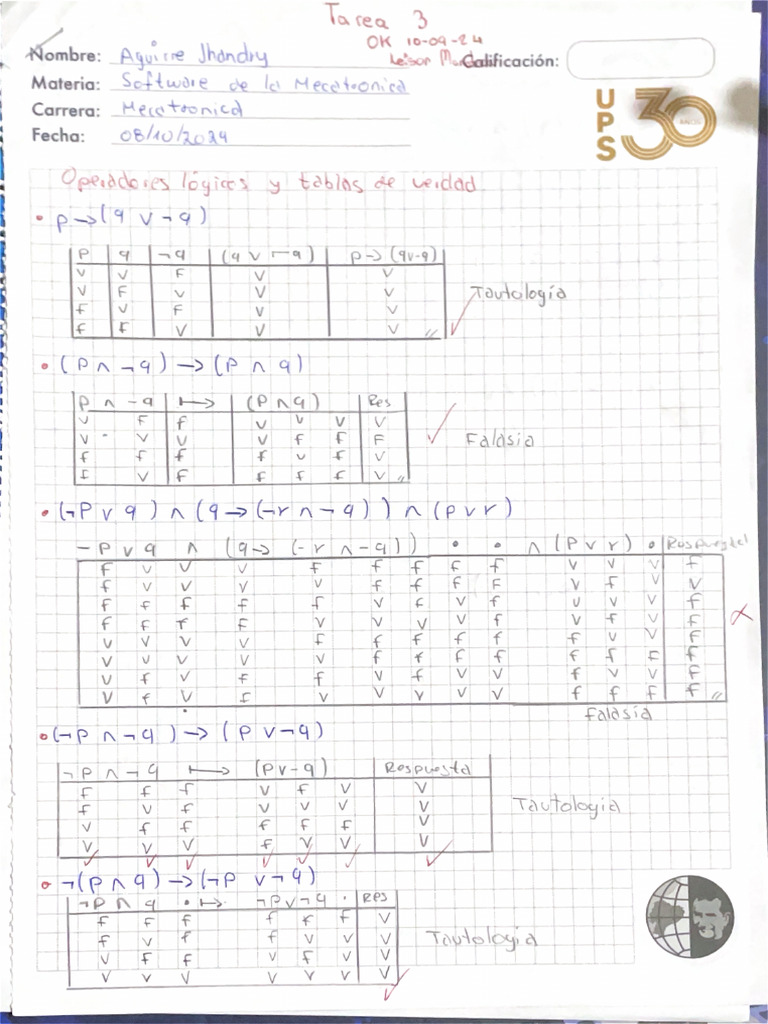 Tarea 3
OK 10-09-24
Nombre: Aguirre Jhandry
Calificación:
Materia: Software de la Mecatronica
Carrera: Mecatronica
Fecha: 08/10/2024
UPS 30 AÑOS
Operadores lógicos y tablas de verdad
• p→(q ∨ ¬q)
P q ¬q (q ∨ ¬q) p→(q∨¬q)
V V F V V
V F V V V
f V F V V
f f V V V //
Tautología
• (P ∧ ¬q) → (P ∧ q)
P ∧ ¬q ↦ (P∧q) Res
V f f V V V V
V V V V f f F
f f f f v f V
f V f f f f V //
Falasia
• (¬P ∨ q) ∧ (q→(¬r ∧ ¬q)) ∧ (p∨r)
¬P ∨ q ∧ (q→ (¬r ∧ ¬q)) • • ∧ (P∨r) • Respuesta
f V V V f f f f f V V V f
f V V V V f f F F V f V V
f f f f f V f V f V V V f
f f f f V V V V f V f V f
V V V V f f f f f f V V f
V V V V V f f F F f f F f
V f V f f V f V V f V V f
V f V f V V V V V f f f f //
falasia
• (¬P ∧ ¬q) → (P ∨ ¬q)
¬P ∧ ¬q ↦ (P∨¬q) Respuesta
f f f V f V V
f V f V V V V
V f f f f f V
V V V f V V V
Tautologia
• ¬(P ∧ q) → (¬P ∨ ¬q)
¬P ∧ q • ↦ ¬P∨¬q • Res
f f f f f f V
f V f f V V V
V f f V f V V
V V V V V V V
Tautologia